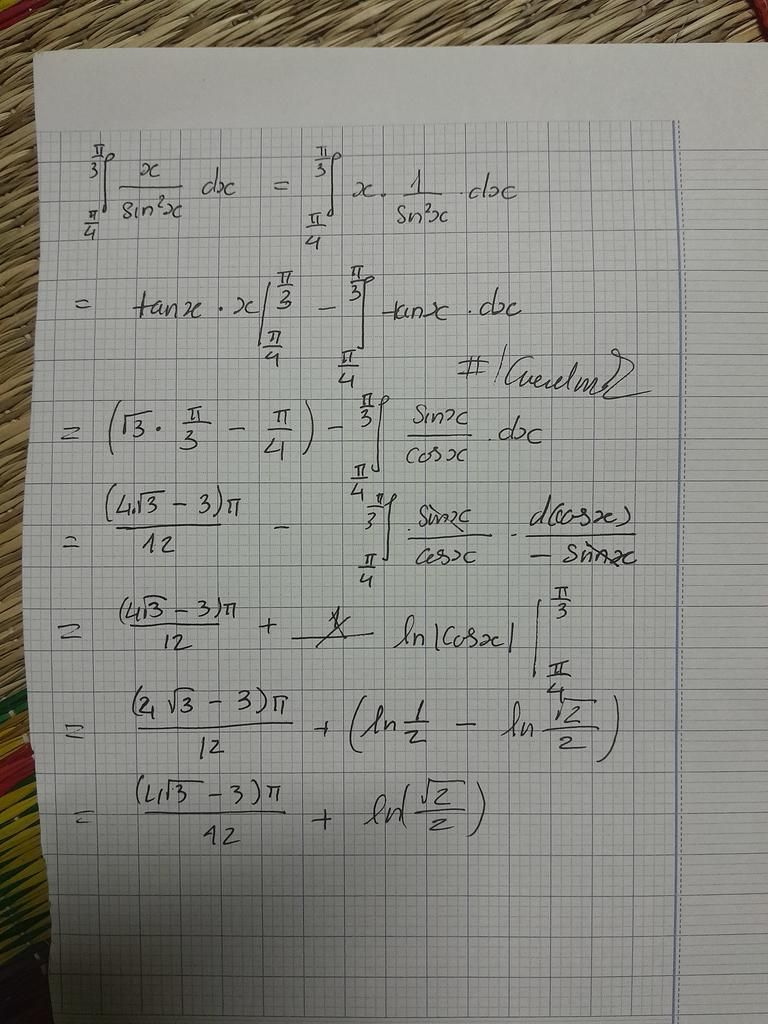 ∫_{π/4}^{π/3} x/sin²x dx = ∫_{π/4}^{π/3} x · 1/sin²x · dx
= tanx · x |_{π/4}^{π/3} - ∫_{π/4}^{π/3} tanx · dx
= (√3 · π/3 - π/4) - ∫_{π/4}^{π/3} sinx/cosx · dx
= (4√3 - 3)π/12 - ∫_{π/4}^{π/3} sinx/cosx · d(cosx)/-sinx
= (4√3 - 3)π/12 + ln|cosx| |_{π/4}^{π/3}
= (4√3 - 3)π/12 + (ln 1/2 - ln √2/2)
= (4√3 - 3)π/12 + ln(√2/2)